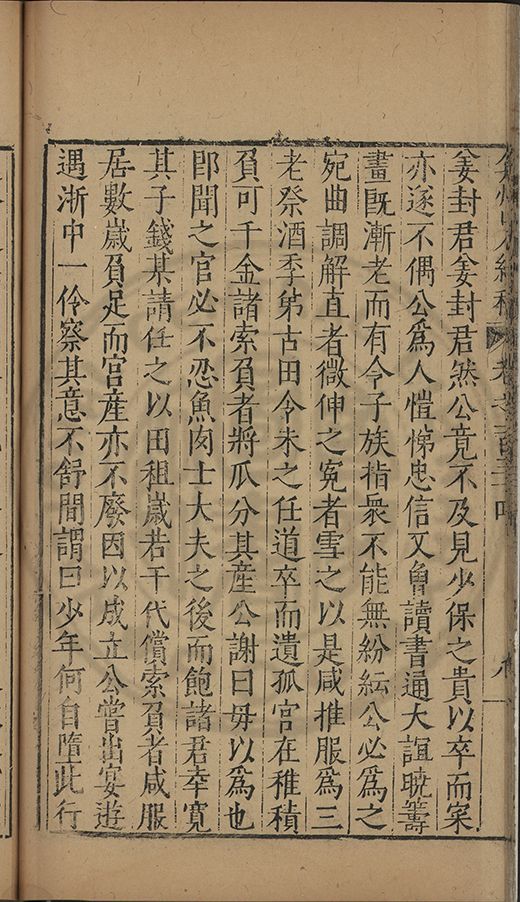 姜封君姜封君然公竟不及見少保之貴以卒而宷
亦遂不偶公爲人愷悌忠信又曾讀書通大誼曉籌
畫旣漸老而有令子族指衆不能無紛紜公必爲之
宛曲調解直者微伸之寃者雪之以是咸推服爲三
老祭酒季弟古田令未之任道卒而遺孤宮在稚積
負可千金諸索負者將瓜分其產公謝曰毋以爲也
卽聞之官必不忍魚肉士大夫之後而飽諸君幸寬
其子錢某請任之以田租歲若干代償索負者咸服
居數歲負足而宮產亦不廢因以成立公嘗出宴遊
遇浙中一伶察其意不舒間謂曰少年何自隋此行